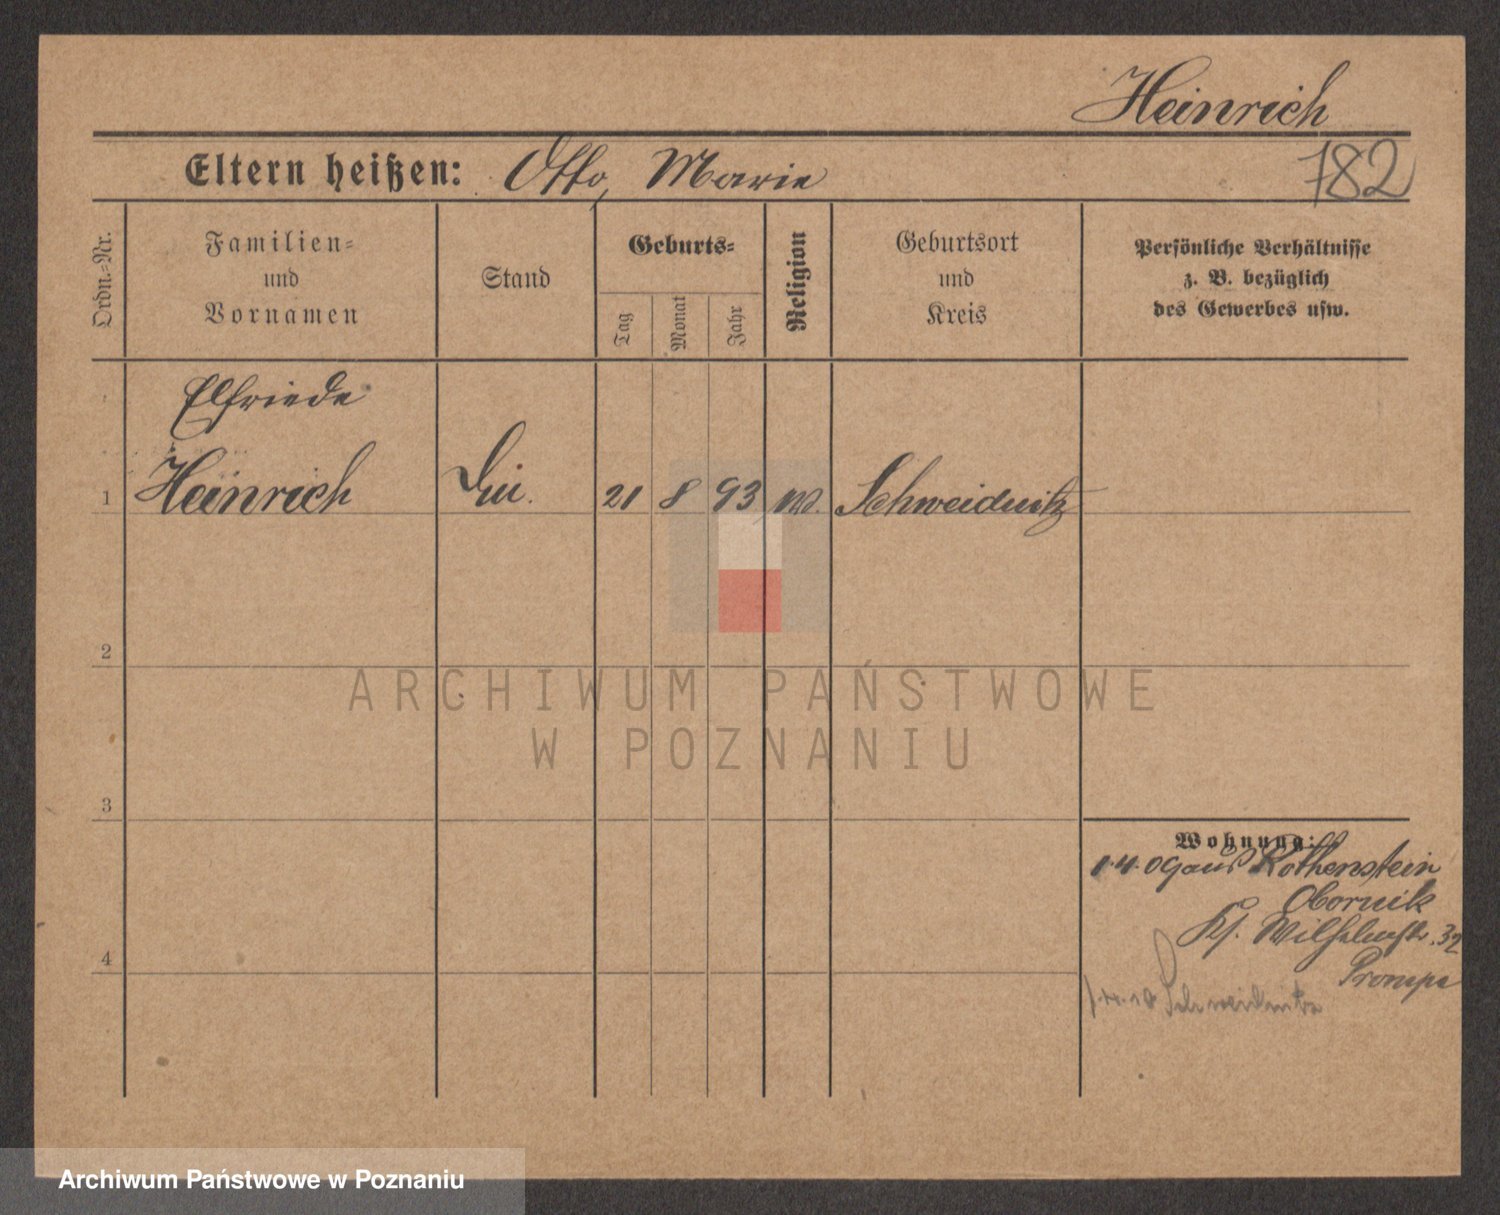 Heinrich
Eltern heißen: Otto, Marie
782
Ordn.=Nr.
Familien=
und
Vornamen
Stand
Geburts=
Tag
Monat
Jahr
Religion
Geburtsort
und
Kreis
Persönliche Verhältnisse
z. B. bezüglich
des Gewerbes usw.
Elfriede
1 Heinrich 21 8 93 Schweidnitz
2
ARCHIWUM PAŃSTWOWE
W POZNANIU
3
Wohnung:
1.4.09 aus Rothenstein
Obornik
Wilhelmstr. 32
4
Schweidnitz
Archiwum Państwowe w Poznaniu